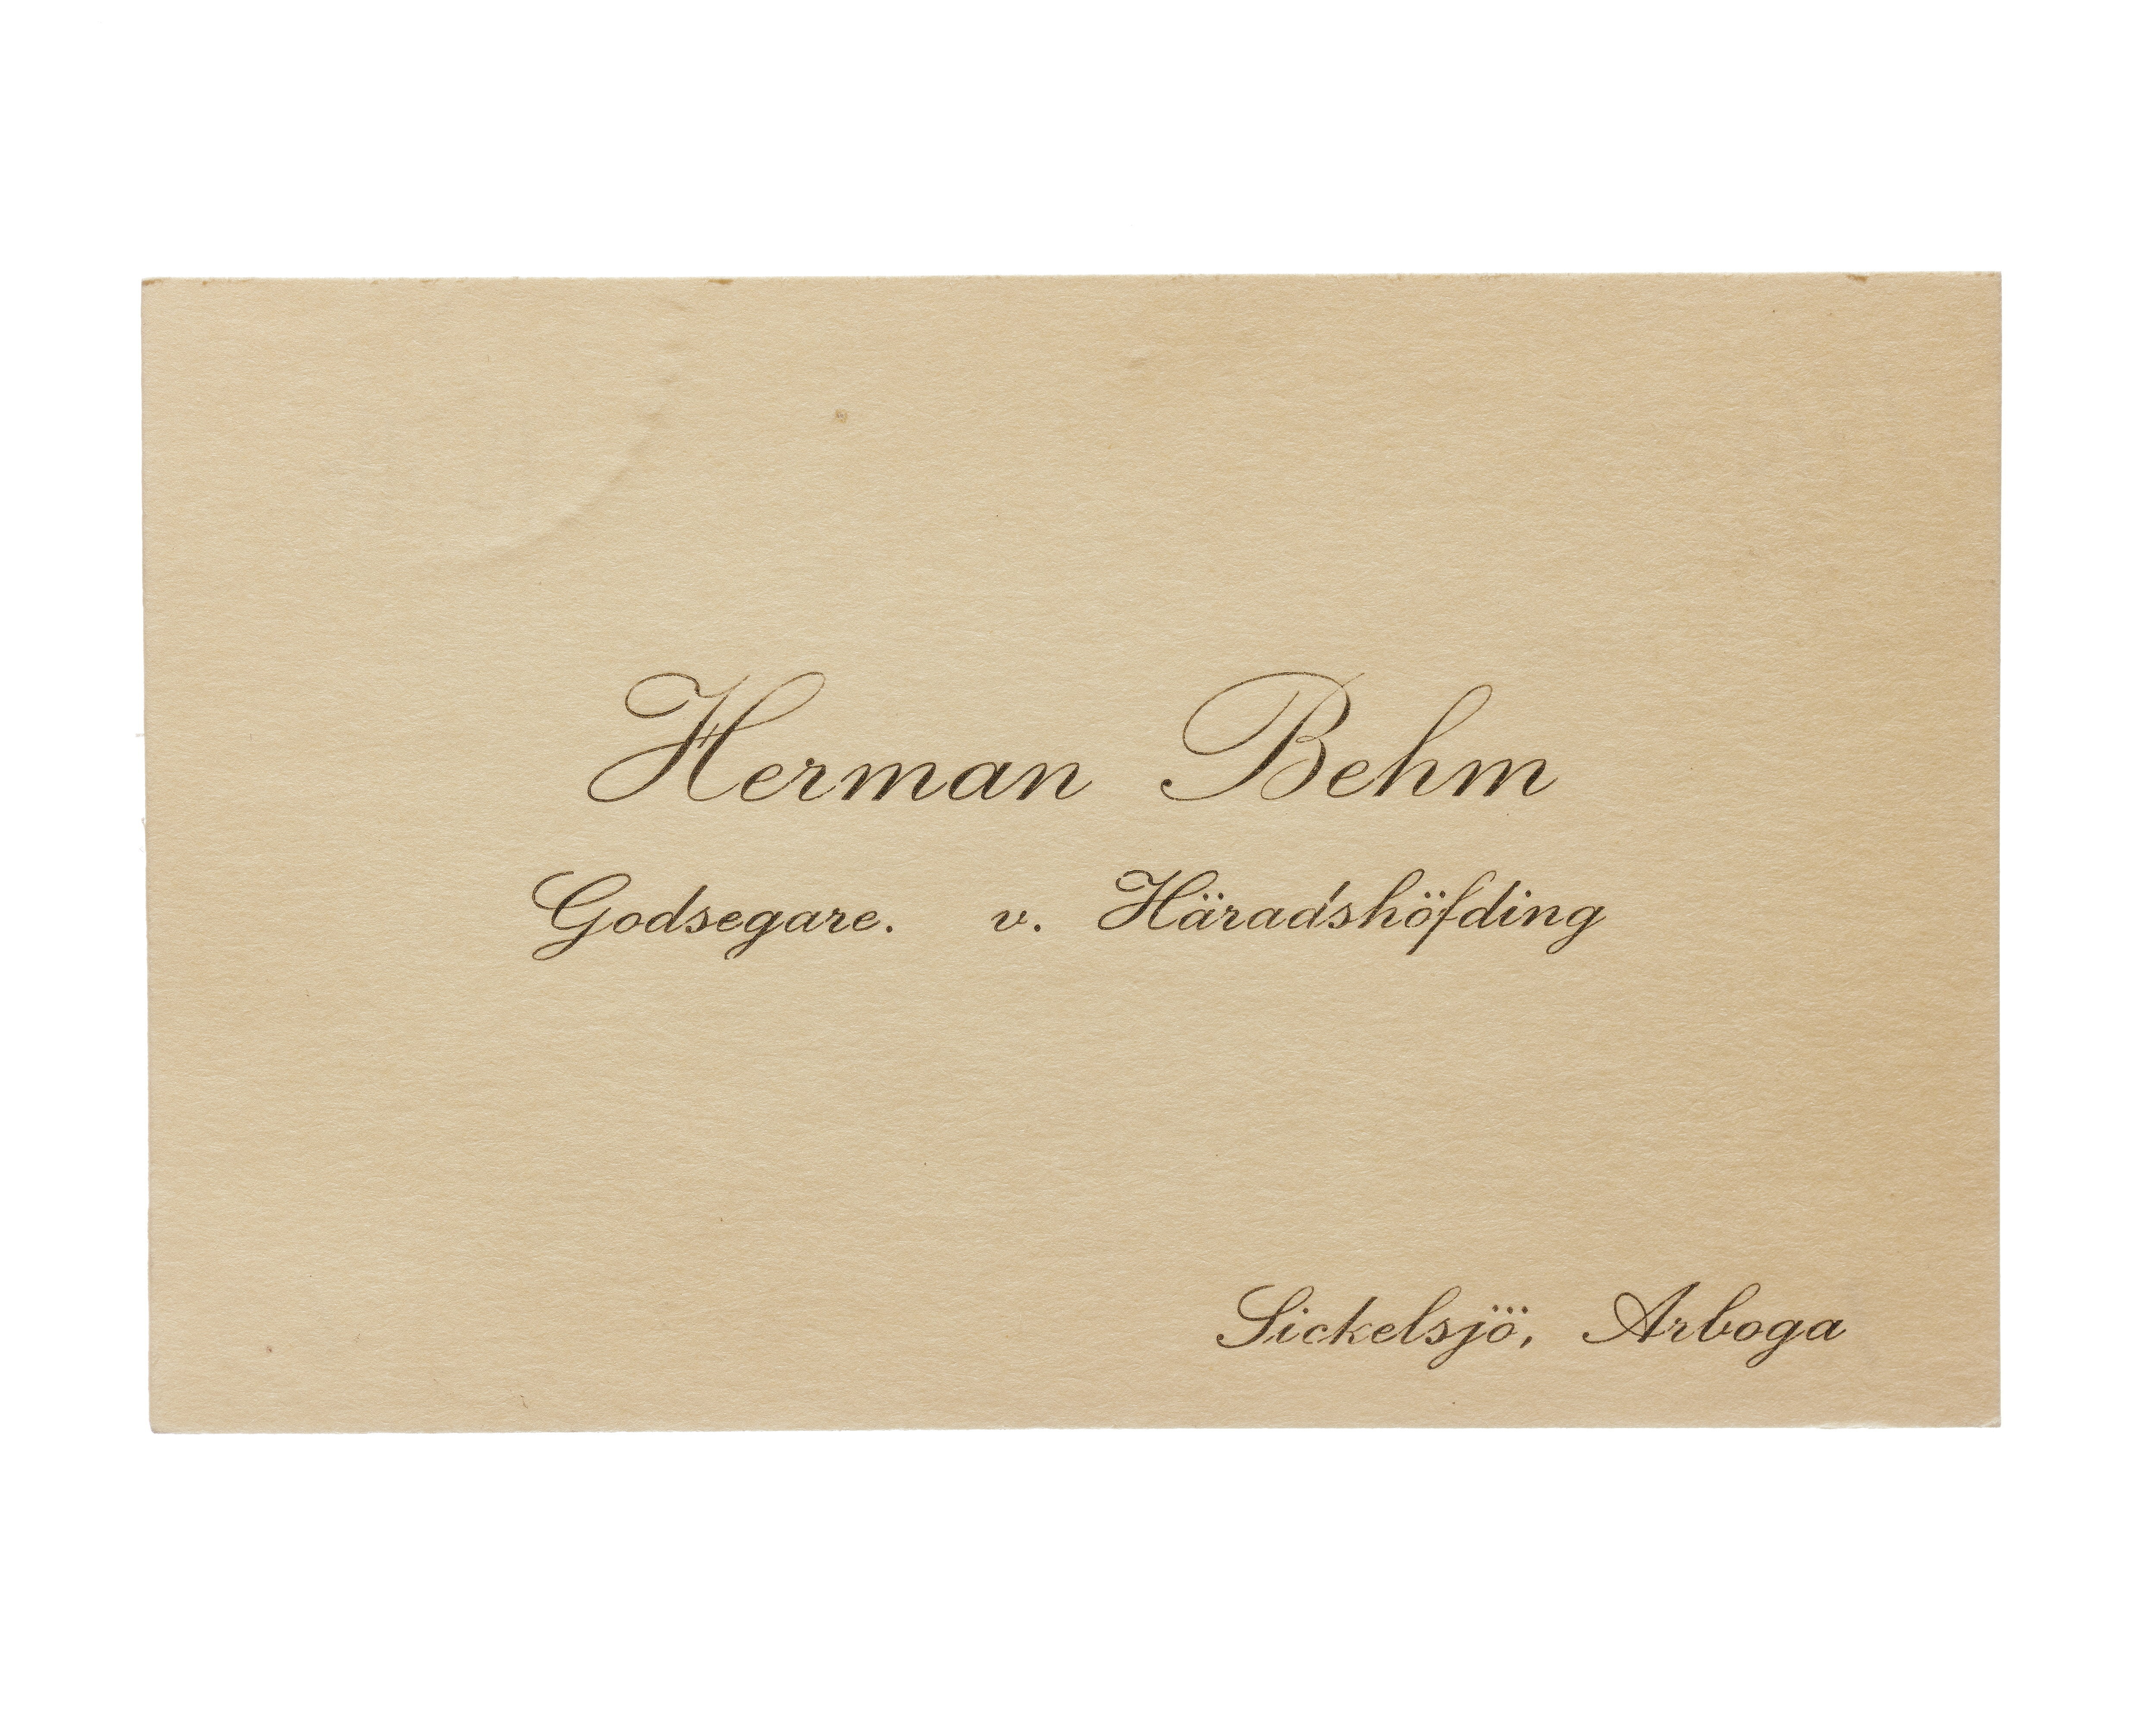 Herman Behm
Godsegare. v. Häradshöfding
Sickelsjö, Arboga